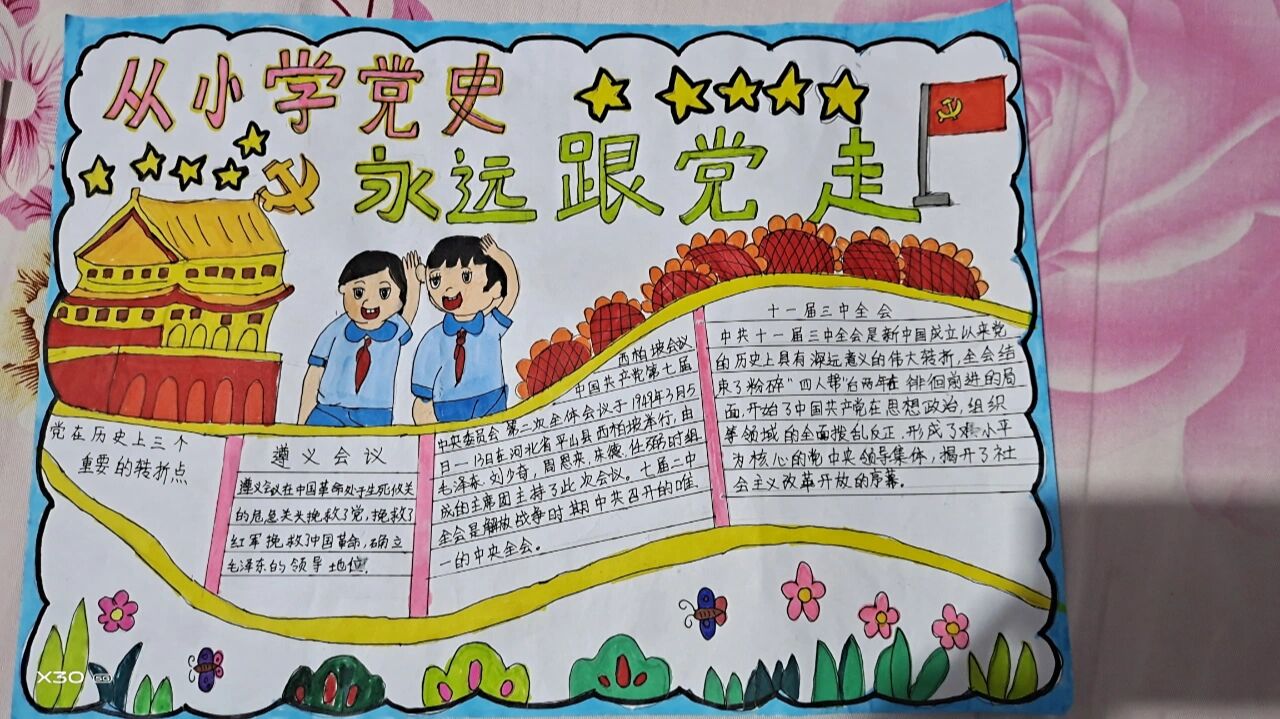 从小学党史
永远跟党走
党在历史上三个
重要的转折点
遵义会议
遵义会议在中国革命处于生死攸关
的危急关头挽救了党，挽救了
红军挽救了中国革命，确立
毛泽东的领导地位。
西柏坡会议
中国共产党第七届
中央委员会第二次全体会议于1949年3月5
日一13日在河北省平山县西柏坡举行，由
毛泽东、刘少奇，周恩来，朱德、任弼时组
成的主席团主持了此次会议。七届二中
全会是解放战争时期中共召开的唯
一的中央全会。
十一届三中全会
中共十一届三中全会是新中国成立以来党
的历史上具有深远意义的伟大转折，全会结
束了粉碎“四人帮”台两年在徘徊前进的局
面，开始了中国共产党在思想政治，组织
等领域的全面拨乱反正，形成了邓小平
为核心的党中央领导集体，揭开了社
会主义改革开放的序幕。
X30 5G